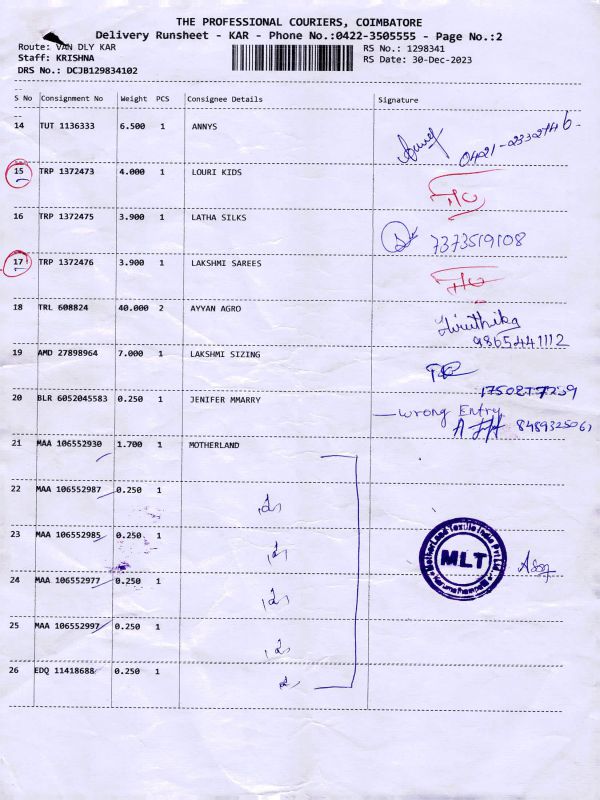 THE PROFESSIONAL COURIERS, COIMBATORE
Delivery Runsheet - KAR - Phone No.:0422-3505555 - Page No.:2
Route: VAN DLY KAR RS No.: 1298341
Staff: KRISHNA RS Date: 30-Dec-2023
DRS No.: DCJB129834102
S No Consignment No Weight PCS Consignee Details Signature
14 TUT 1136333 6.500 1 ANNYS
0421-2332746
15 TRP 1372473 4.000 1 LOURI KIDS
16 TRP 1372475 3.900 1 LATHA SILKS
7373519108
17 TRP 1372476 3.900 1 LAKSHMI SAREES
18 TRL 608824 40.000 2 AYYAN AGRO
9865441112
19 AMD 27898964 7.000 1 LAKSHMI SIZING
20 BLR 6052045583 0.250 1 JENIFER MMARRY
Wrong Entry
21 MAA 106552930 1.700 1 MOTHERLAND
22 MAA 106552987 0.250 1
23 MAA 106552985 0.250 1
MLT
24 MAA 106552977 0.250 1
25 MAA 106552997 0.250 1
26 EDQ 11418688 0.250 1